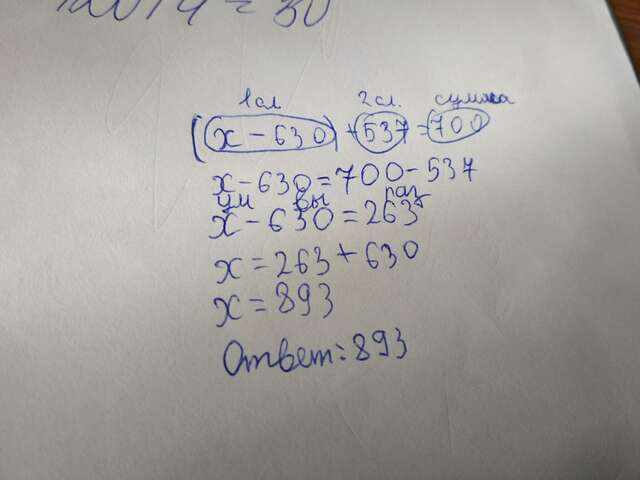 = 30
1сл 2сл. сумма
(x - 630) + 537 = 700
x - 630 = 700 - 537
ум вы раз
x - 630 = 263
x = 263 + 630
x = 893
Ответ: 893